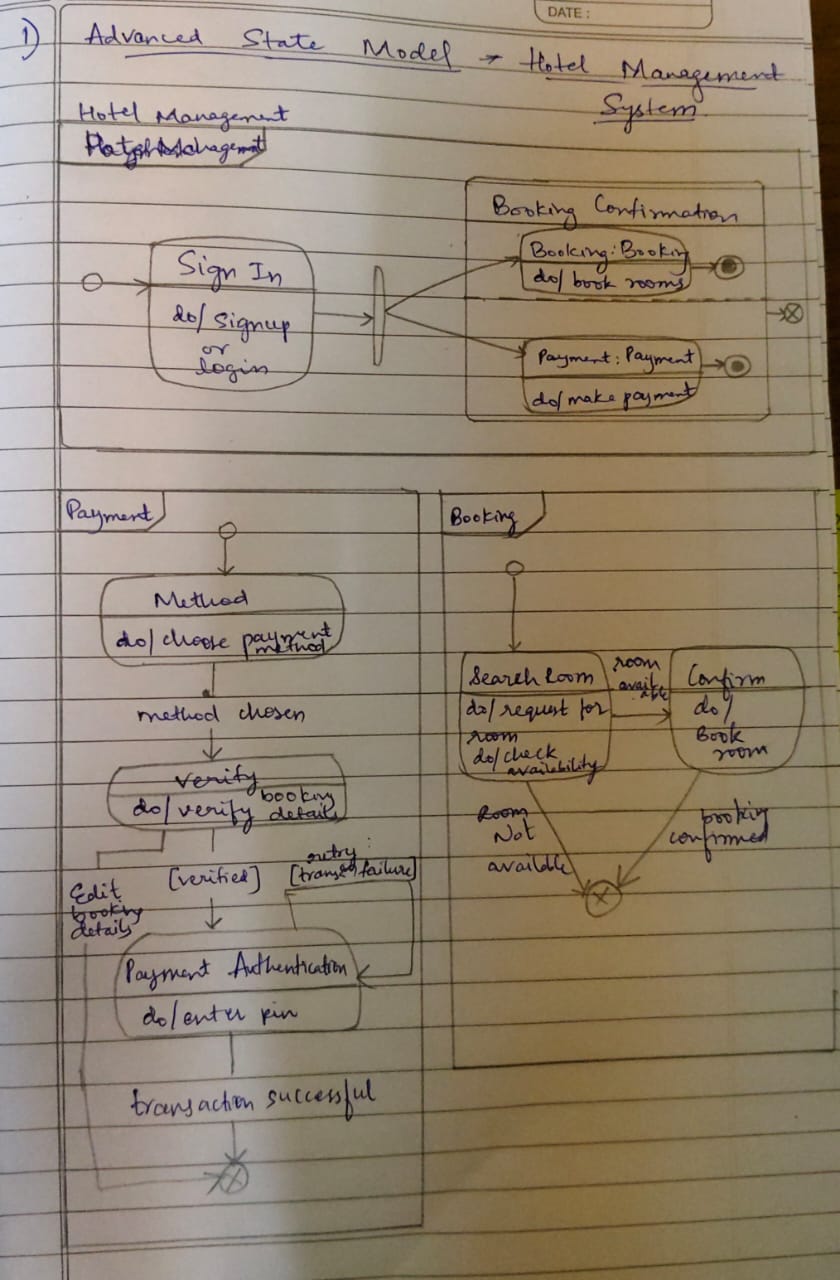 DATE :
1) Advanced State Model → Hotel Management
System
Hotel Management
Booking Confirmation
Sign In
do/ signup
or
login
Booking: Booking
do/ book rooms
Payment: Payment
do/make payment
Payment
Method
do/ choose payment
method
method chosen
verify
do/ verify booking
details
[verified]
retry:
failure]
Edit
booking
details
Payment Authentication
do/enter pin
transaction successful
Booking
Search Room
do/request for
room
do/check
availability
room
available
Confirm
do/
Book
room
Room
Not
available
booking
confirmed